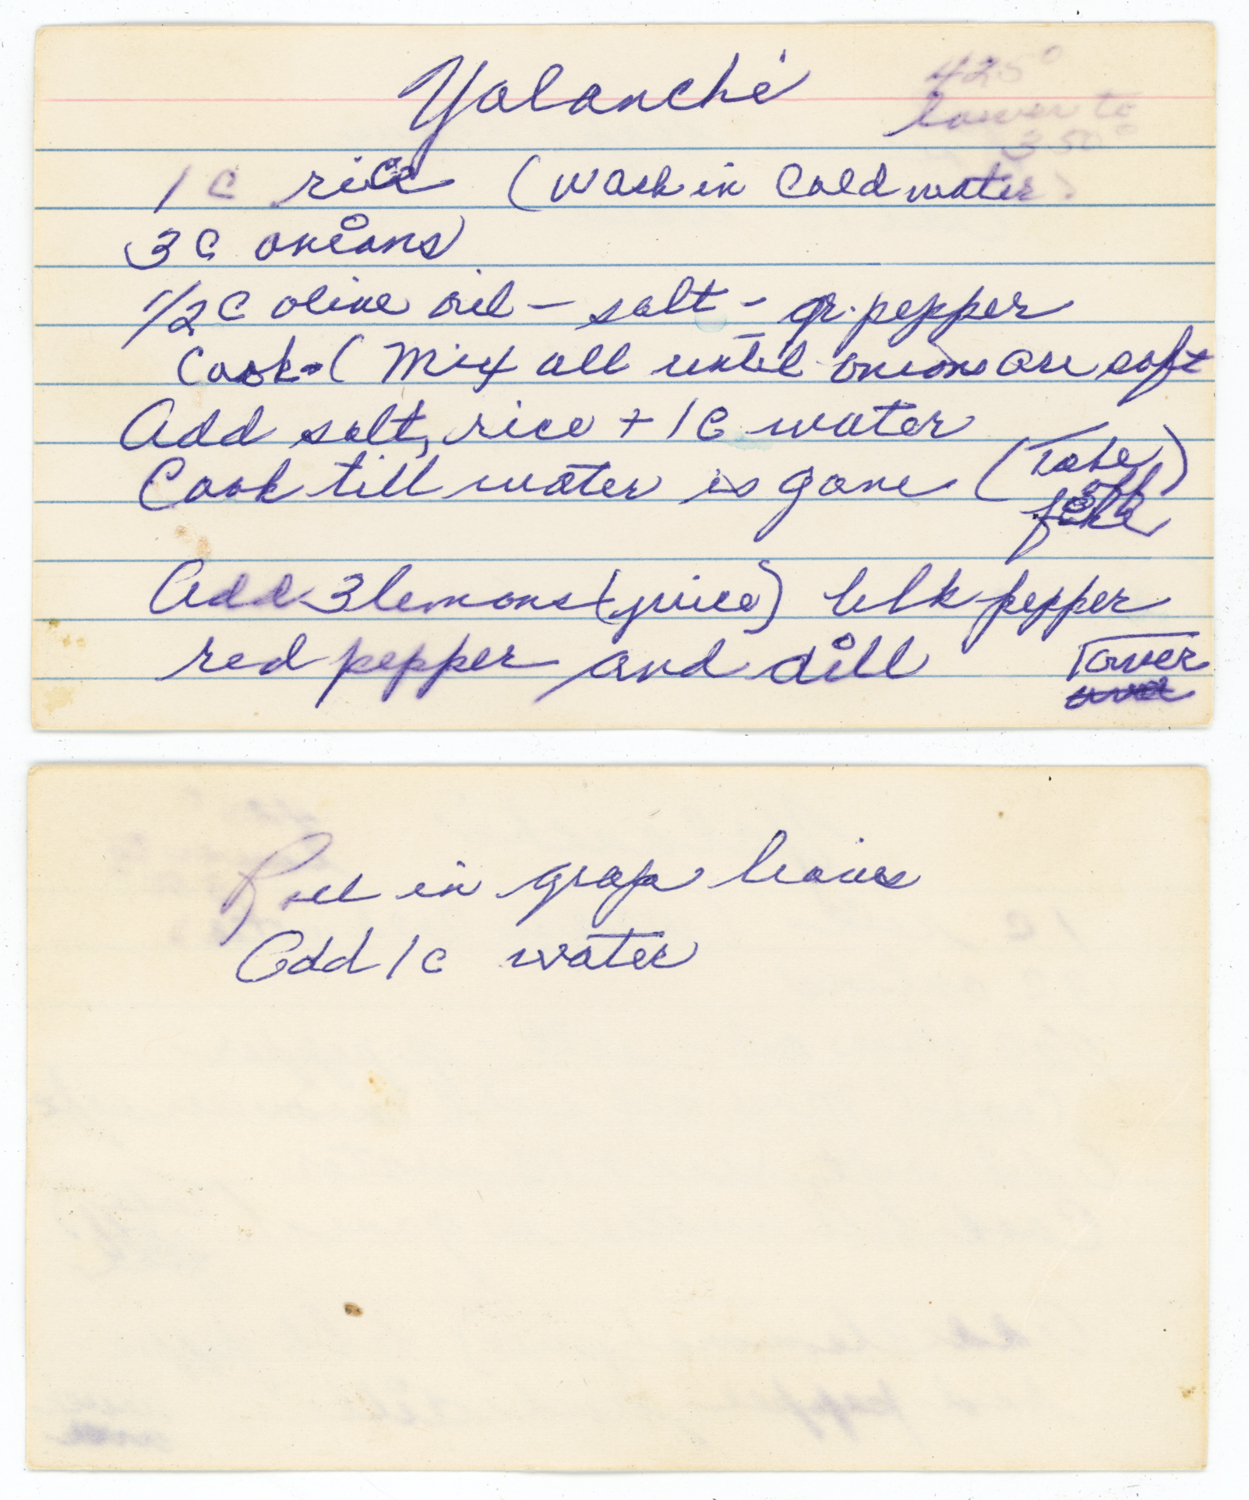 Yalanche
425°
lower to
350°
1 C rice (wash in cold water)
3 C onions
1/2 C olive oil - salt - gr. pepper
Cook - (Mix all until onions are soft
Add salt, rice + 1 C water
Cook till water is gone (Take off
fire)
Add 3 lemons (juice) blk pepper
red pepper and dill
Tover
over
Roll in grape leaves
Add 1 c water